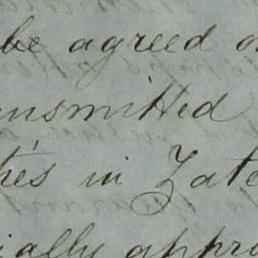 be agreed o
nsmitted
ties in Zate
ially appro